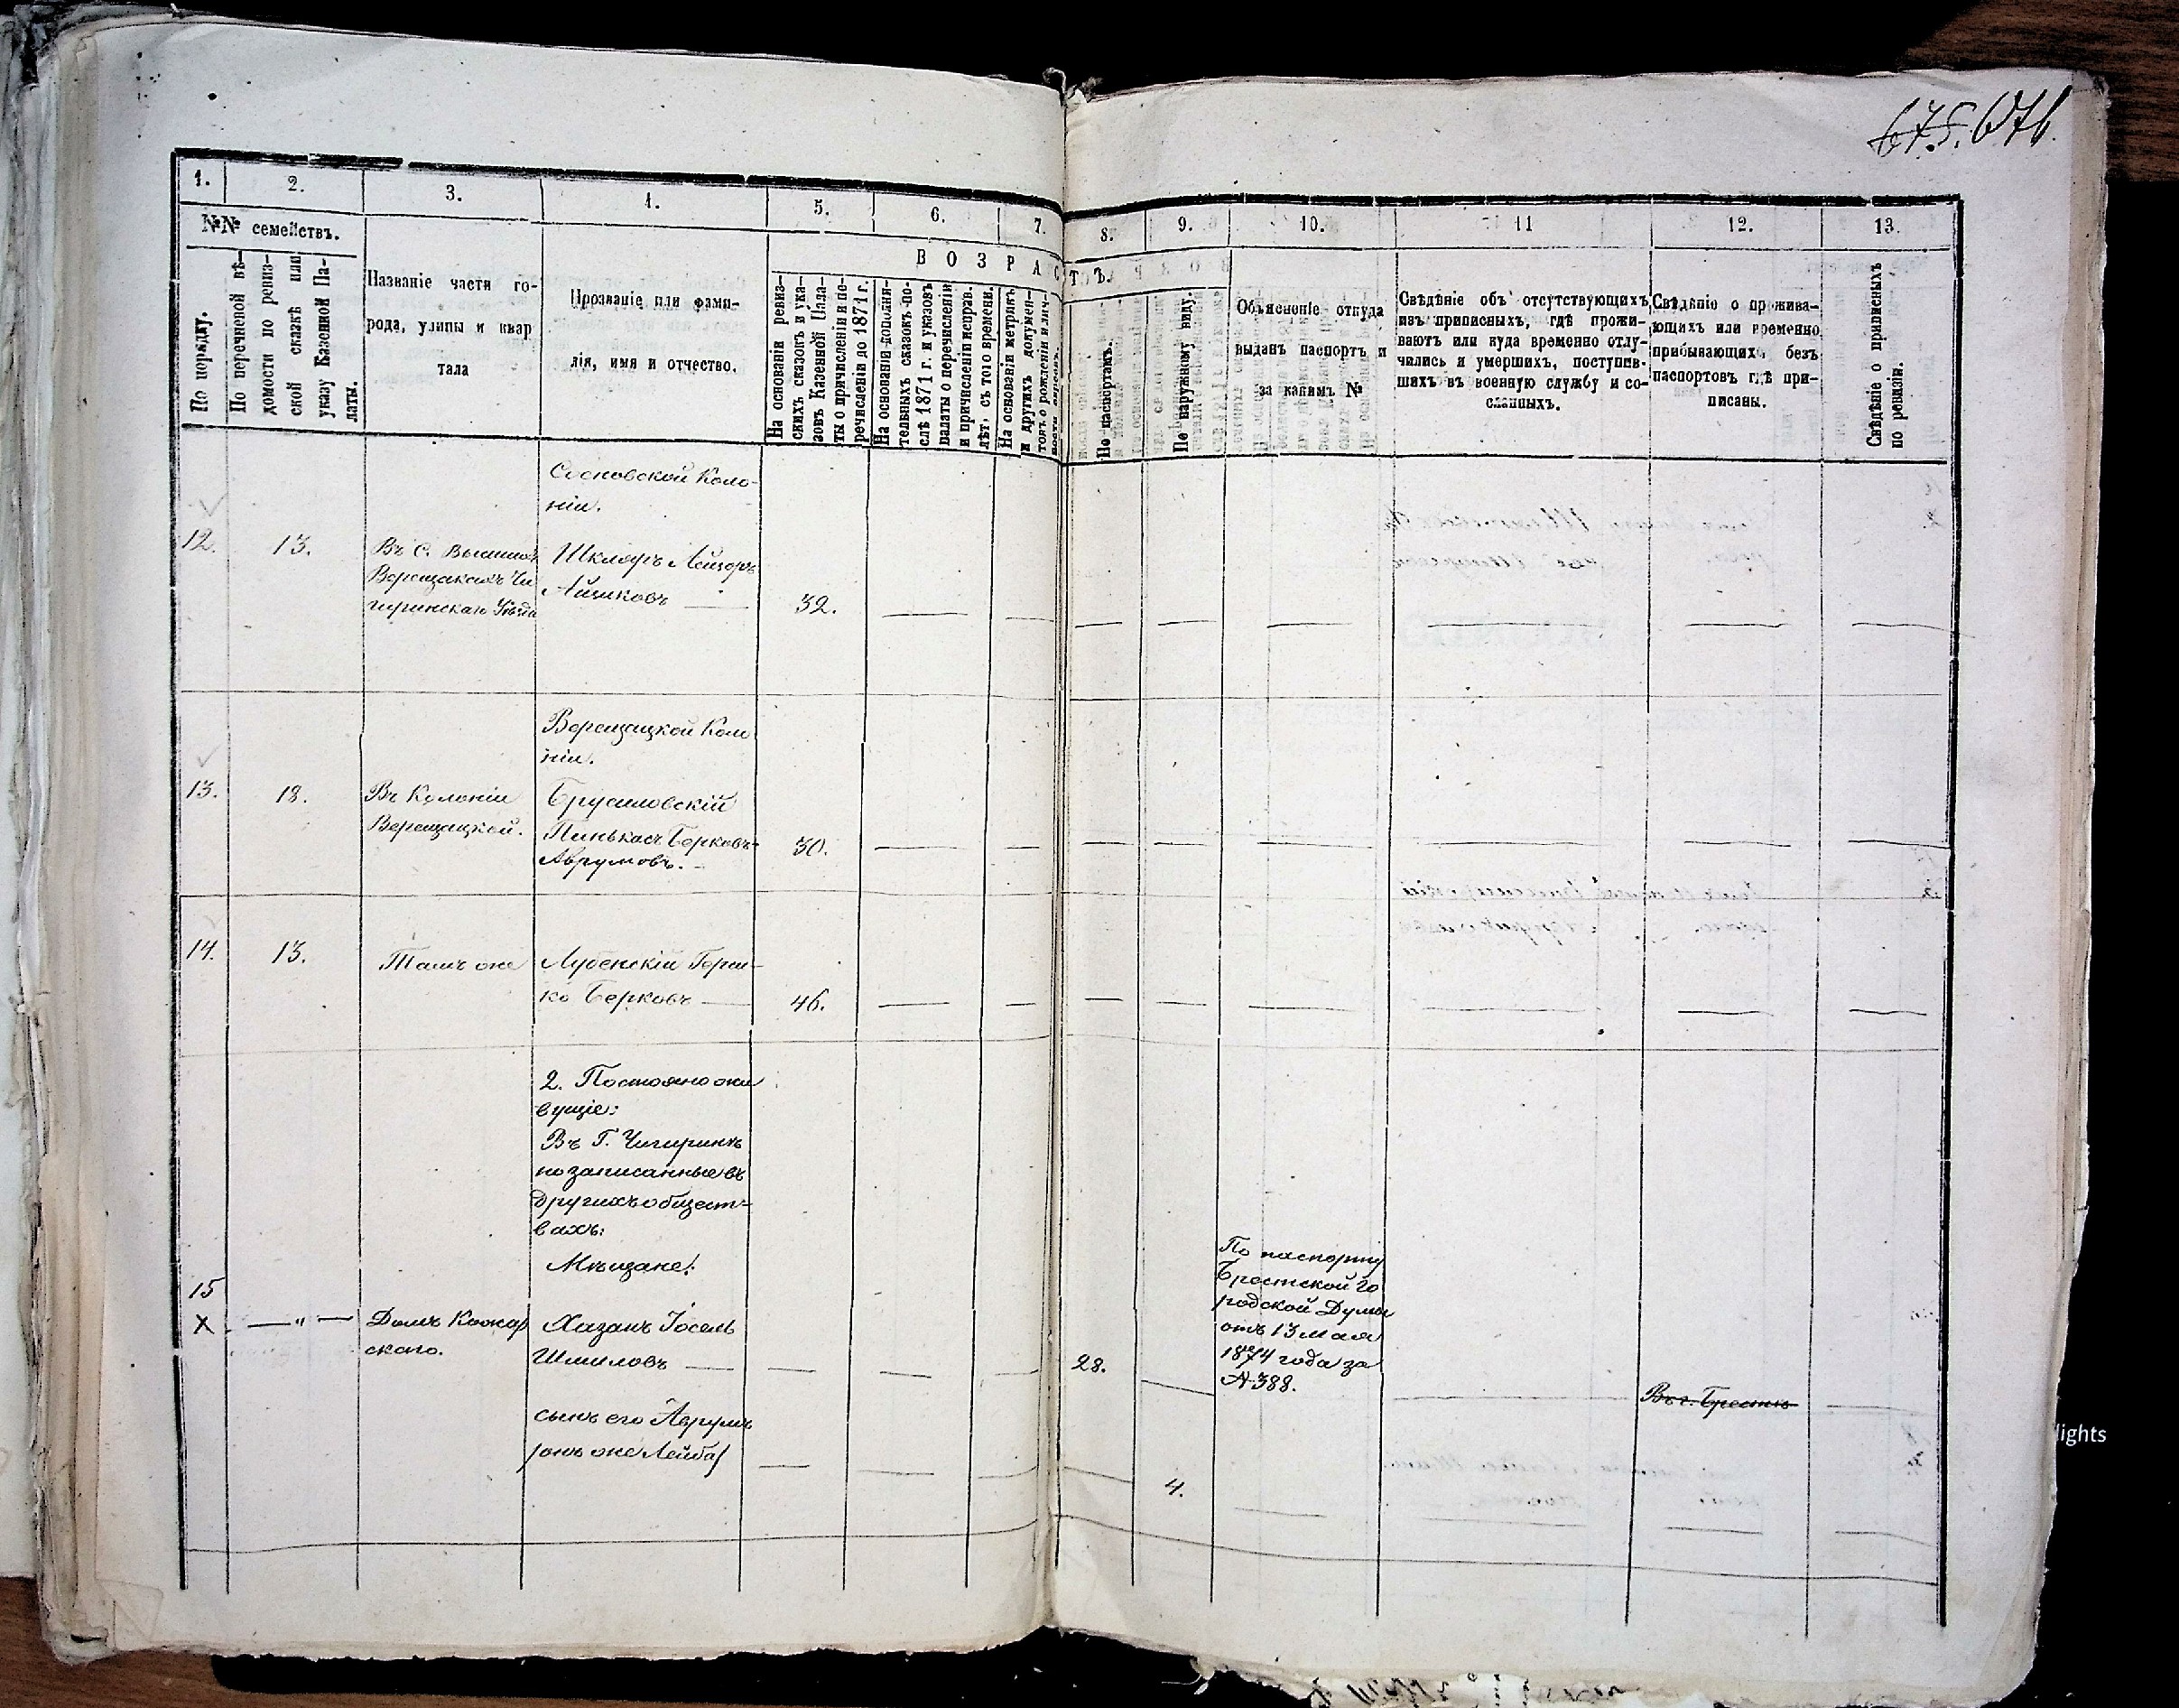 675. 676.
1.
2.
3.
4.
5.
6.
7.
8.
9.
10.
11
12.
13.
№№ семействъ.
По порядку.
По перечневой вѣ-
домости по ревиз-
ской сказкѣ или
указу Казенной Па-
латы.
Названіе части го-
рода, улицы и квар
тала
Прозваніе или фами-
лія, имя и отчество.
ВОЗРАСТЪ.
На основаніи ревиз-
скихъ сказокъ и ука-
зовъ Казенной Пала-
ты о причисленіи и пе-
речисленіи до 1871 г.
На основаніи дополни-
тельныхъ сказокъ по-
слѣ 1871 г. и указовъ
палаты о перечисленіи
и причисленіи неправ.
лѣт, съ того времени.
На основаніи метрикъ
и другихъ докумен-
товъ о рожденіи и лич-
По паспортамъ.
По наружному виду.
Объясненіе откуда
выданъ паспортъ и
за какимъ №
Свѣдѣніе объ отсутствующихъ
изъ приписныхъ, гдѣ прожи-
ваютъ или куда временно отлу-
чились и умершихъ, поступив-
шихъ въ военную службу и со-
сланныхъ.
Свѣдѣніе о прожива-
ющихъ или временно
прибывающихъ безъ
паспортовъ гдѣ при-
писаны.
Свѣдѣніе о приписныхъ
по ревизіи.
Сосновской Коло-
ніи.
12.
13.
Въ с.
Верещакахъ Чи
гиринскаго Уѣзда
Шкляръ Лейзоръ
Айзиковъ
32.
Верещацкой Коло
ніи.
13.
18.
Въ Колоніи
Верещацкой.
Брусиловскій
Пинькасъ Берковъ-
Аврумовъ.
30.
14.
13.
Тамъ же
Лубенскій Герш-
ко Берковъ
46.
2. Постоянно жи
вущіе:
Въ г. Чигиринѣ
но записанные въ
другихъ общест-
вахъ:
Мѣщане:
15
X
"
Домъ
скаго.
Хазанъ Іосель
Шмиловъ
28.
По паспорту
Брестской Го
родской Думы
отъ 13 мая
1874 года за
№ 388.
Въ г. Брестѣ
сынъ его Аврумъ
/онъ же Лейба/
4.
lights